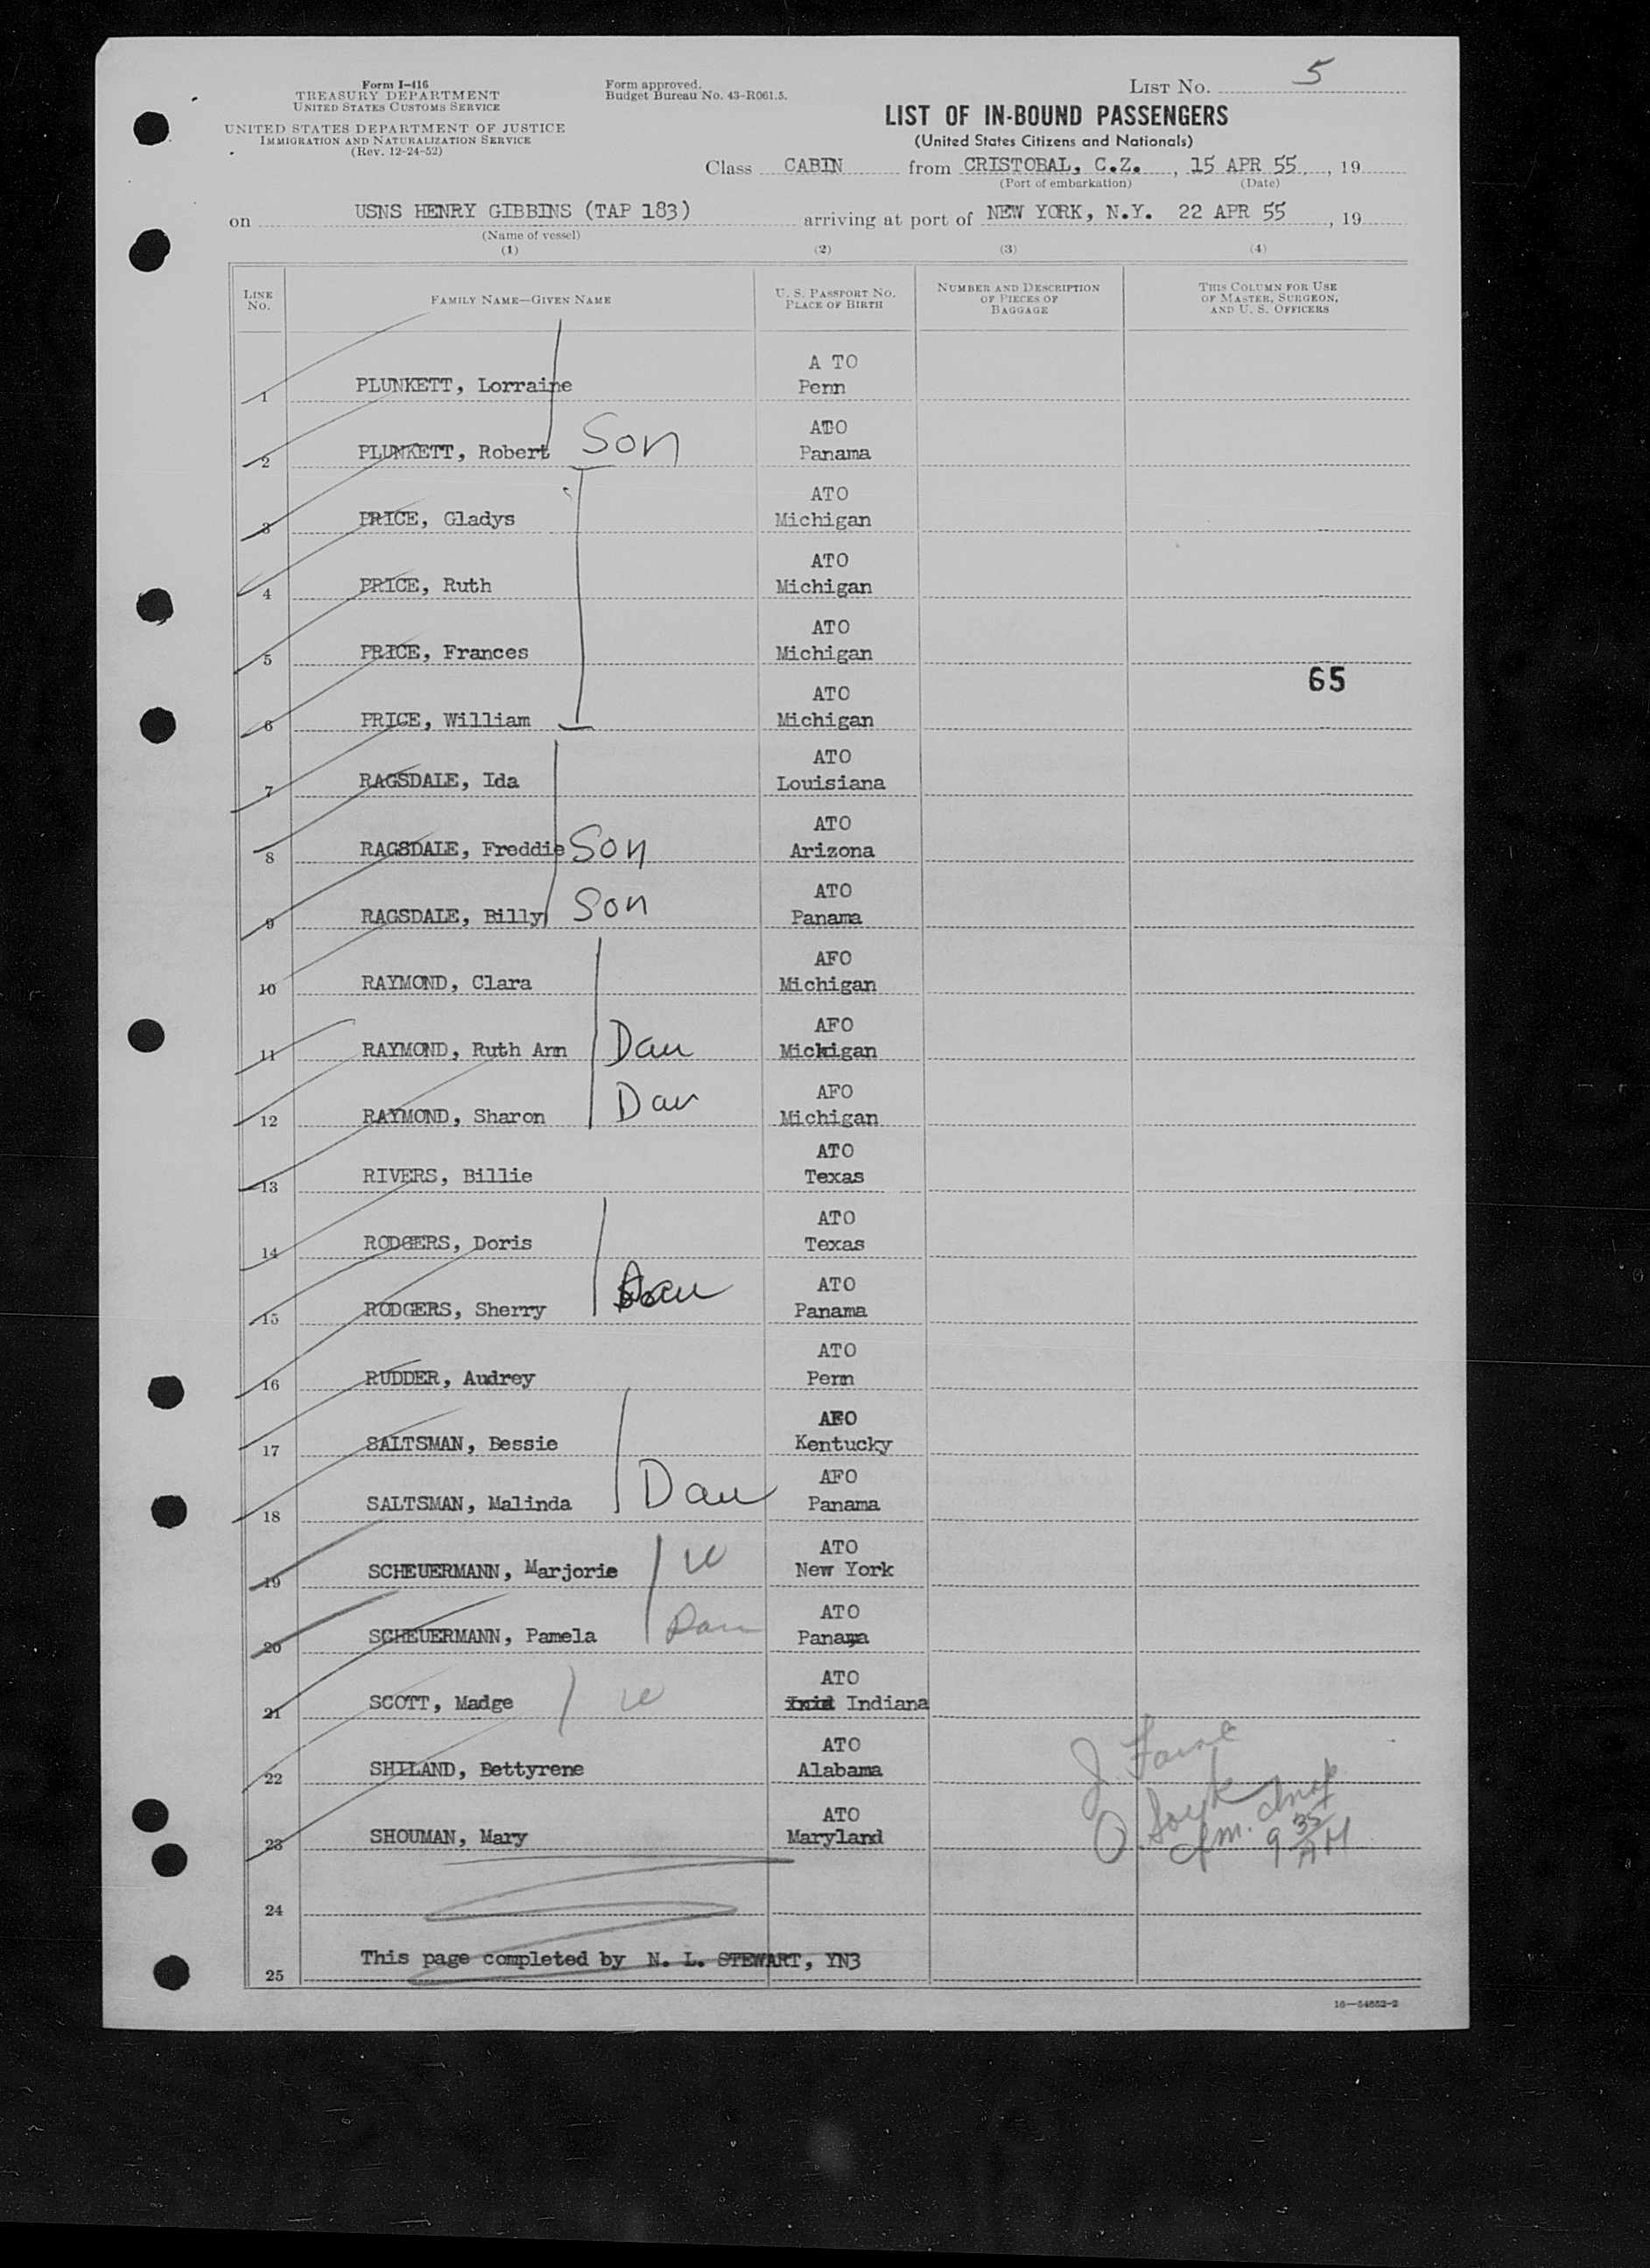 Form I-416
TREASURY DEPARTMENT
UNITED STATES CUSTOMS SERVICE
UNITED STATES DEPARTMENT OF JUSTICE
IMMIGRATION AND NATURALIZATION SERVICE
(Rev. 12-24-52)
Form approved.
Budget Bureau No. 43-R061.5.
LIST NO. 5
LIST OF IN-BOUND PASSENGERS
(United States Citizens and Nationals)
Class CABIN from CRISTOBAL, C.Z. , 15 APR 55 , 19
(Port of embarkation) (Date)
on USNS HENRY GIBBINS (TAP 183) arriving at port of NEW YORK, N.Y. 22 APR 55 , 19
(Name of vessel)
(1) (2) (3) (4)
LINE NO. FAMILY NAME—GIVEN NAME U. S. PASSPORT NO. PLACE OF BIRTH NUMBER AND DESCRIPTION OF PIECES OF BAGGAGE THIS COLUMN FOR USE OF MASTER, SURGEON, AND U. S. OFFICERS
A TO
1 PLUNKETT, Lorraine Penn
ATO
2 PLUNKETT, Robert Son Panama
ATO
3 PRICE, Gladys Michigan
ATO
4 PRICE, Ruth Michigan
ATO
5 PRICE, Frances Michigan
65
ATO
6 PRICE, William Michigan
ATO
7 RAGSDALE, Ida Louisiana
ATO
8 RAGSDALE, Freddie Son Arizona
ATO
9 RAGSDALE, Billy Son Panama
AFO
10 RAYMOND, Clara Michigan
AFO
11 RAYMOND, Ruth Ann Dau Michigan
AFO
12 RAYMOND, Sharon Dau Michigan
ATO
13 RIVERS, Billie Texas
ATO
14 RODGERS, Doris Texas
ATO
15 RODGERS, Sherry Dau Panama
ATO
16 RUDDER, Audrey Penn
AFO
17 SALTSMAN, Bessie Kentucky
AFO
18 SALTSMAN, Malinda Dau Panama
ATO
19 SCHEUERMANN, Marjorie W New York
ATO
20 SCHEUERMANN, Pamela Dau Panama
ATO
21 SCOTT, Madge W Indiana
ATO
22 SHILAND, Bettyrene Alabama
ATO
23 SHOUMAN, Mary Maryland
9 35 AM
24
This page completed by N. L. STEWART, YN3
25
16—54652-2